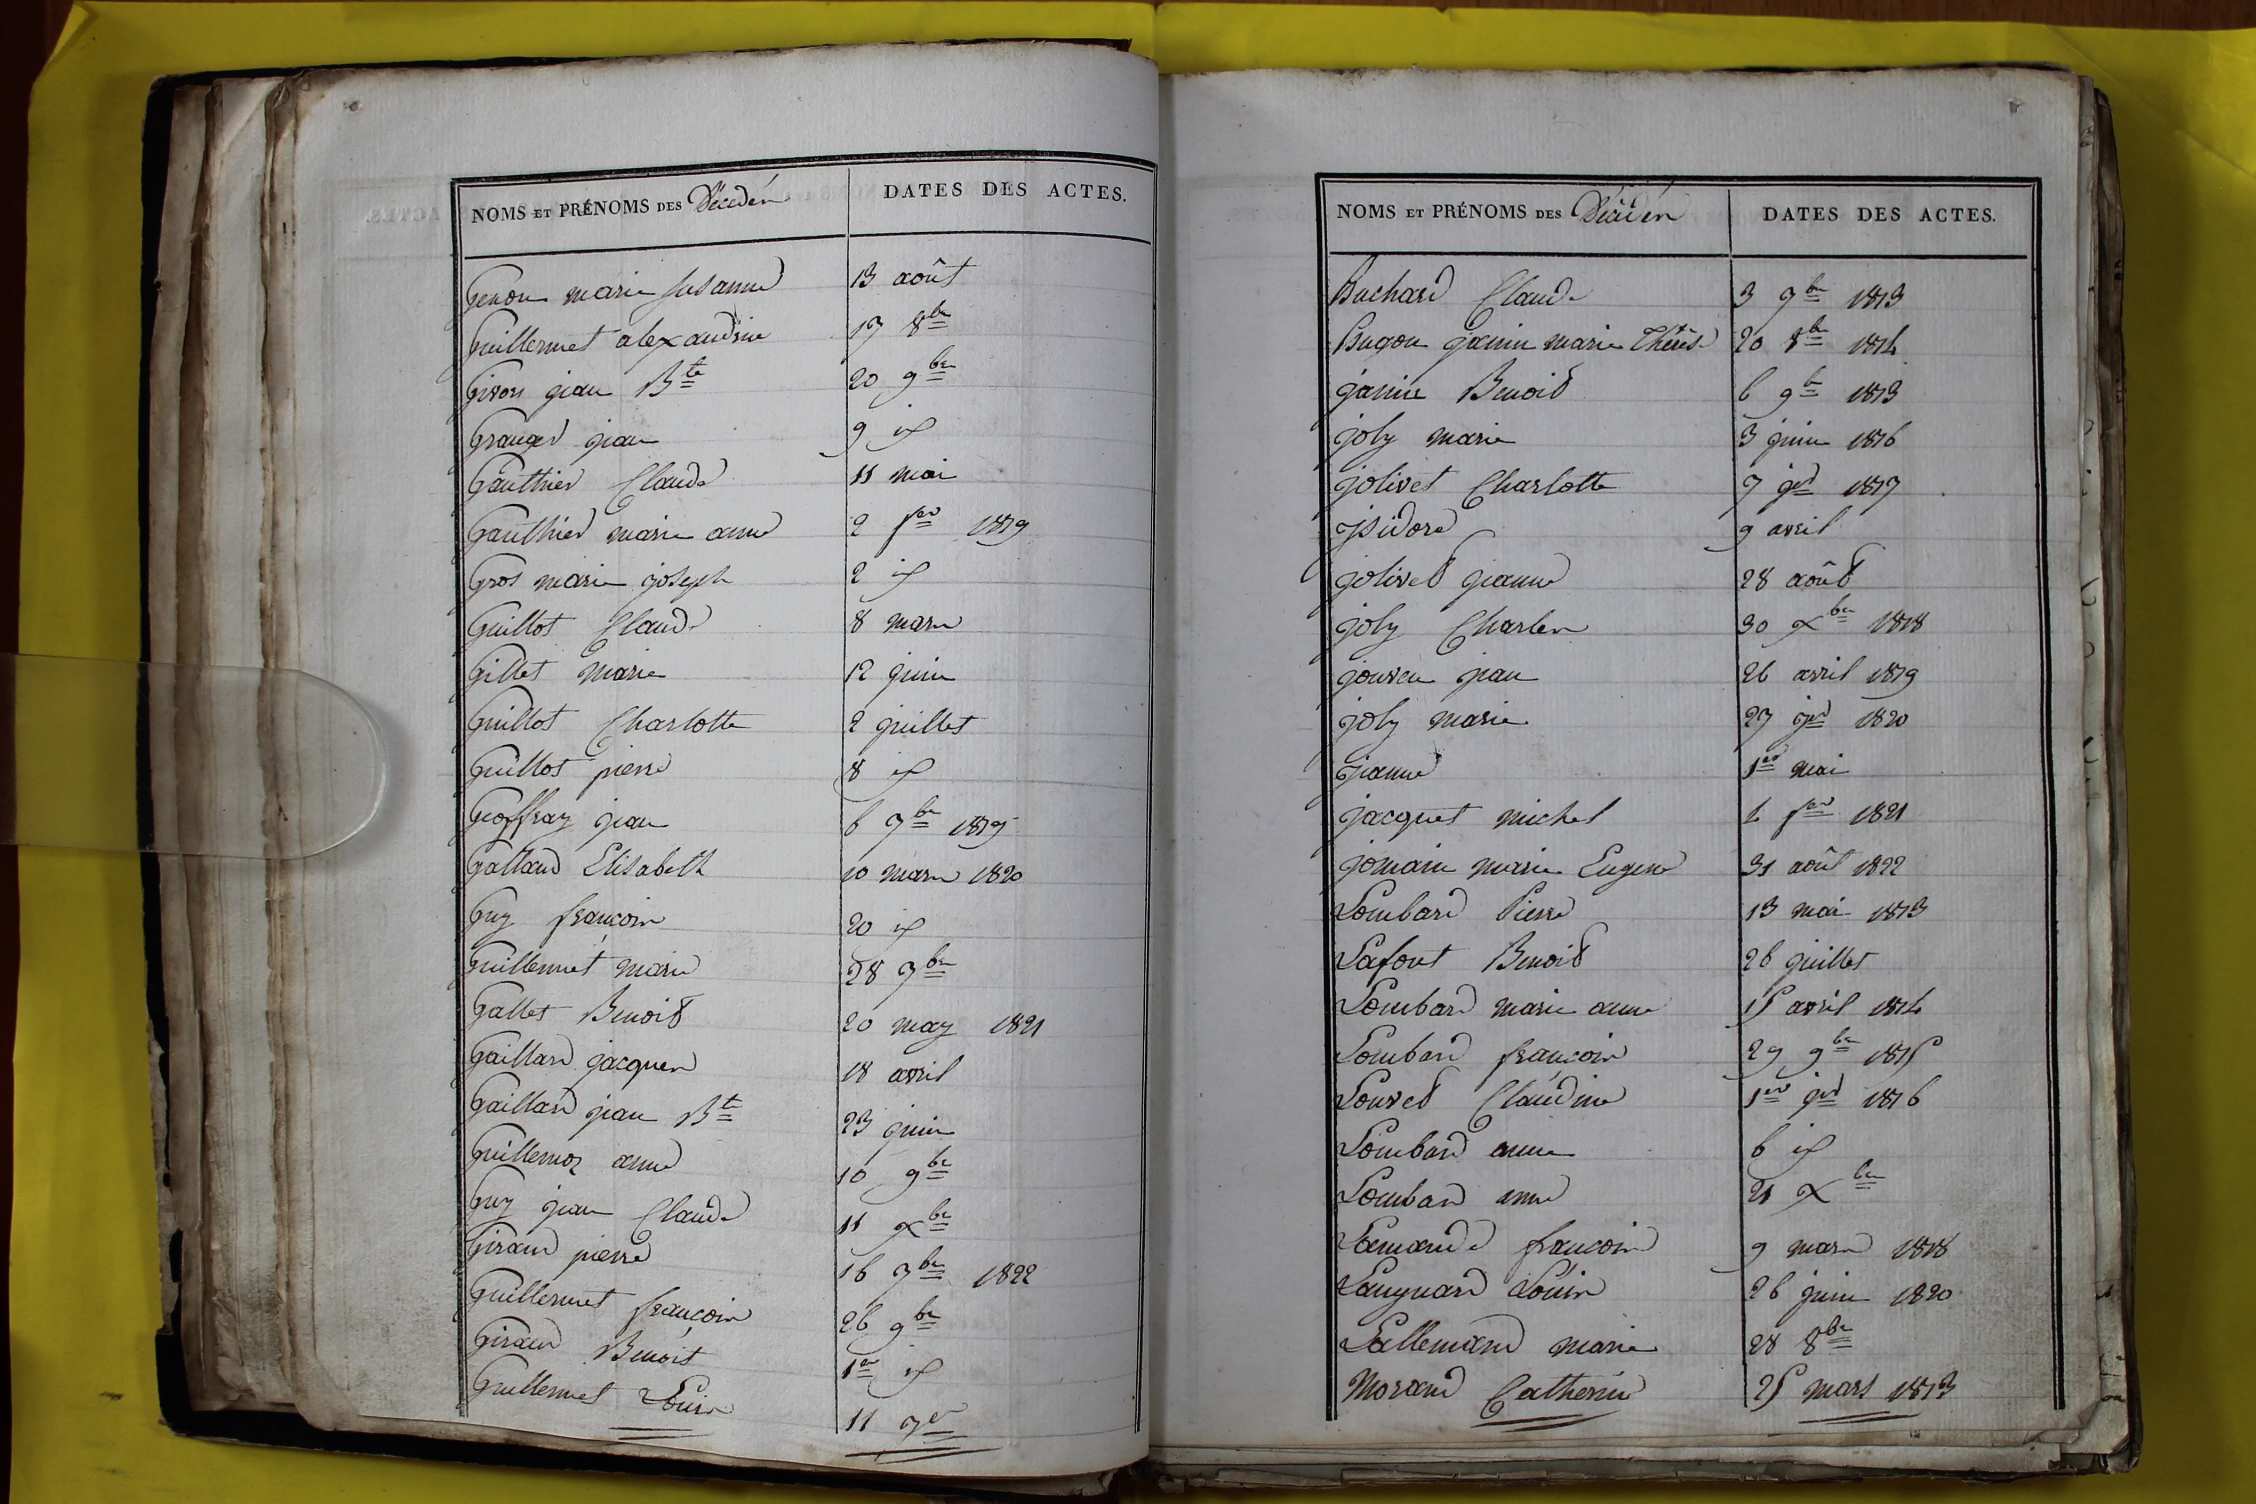 NOMS ET PRÉNOMS DES Décédés DATES DES ACTES.
Genon marie susanne 13 août
Guillermet alexandrine 17 8bre
Givors jean Bte 20 9bre
Granger jean 9 id
Gauthier Claude 11 mai
Gauthier marie anne 2 fer 1819
Gros marie joseph 2 id
Guillot Claude 8 mars
Gillet marie 12 juin
Guillot Charlotte 2 juillet
Guillot pierre 8 id
Geoffray jean 6 7bre 1819
Galland Elisabeth 10 mars 1820
Guy françois 20 id
Guillermet marie 28 7bre
Gallet Benoit 20 may 1821
Gaillard jacques 18 avril
Gaillard jean Bte 23 juin
Guillemoz anne 10 9bre
Guy jean Claude 11 xbre
Giraud pierre 16 7bre 1822
Guillermet françois 26 9bre
Giraud Benoit 1er id
Guillermet Louis 11
NOMS ET PRÉNOMS DES Décédés DATES DES ACTES.
Huchard Claude 3 9bre 1813
Hugon janin marie Thérèse 20 8bre 1814
janin Benoit 6 9bre 1813
joly marie 3 juin 1816
jolivet Charlotte 7 jer 1817
jsidore 9 avril
jolivet jeanne 28 août
joly Charles 30 xbre 1818
jean 26 avril 1819
joly marie 27 jer 1820
jeanne 1er mai
jacquet michel 4 fer 1821
jomain marie Eugene 31 août 1822
Lombard Pierre 13 mai 1813
Lafont Benoit 26 juillet
Lombard marie anne 15 avril 1814
Lombard françois 29 9bre 1815
Louvet Claudine 1er jer 1816
Lombard anne 6 id
Lombard anne 21 xbre
Lamande françois 9 mars 1818
Laugnard Louis 26 juin 1820
Lallemand marie 28 8bre
Morand Catherine 25 mars 1813